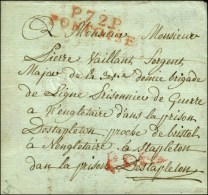 P.72.P
PONTOISE
A Monsieur Monsieur
Pierre Vaillant, Sergent
Major de la demie brigade
de Ligne Prisonnier de Guerre
a l'Engleterre dans la prison
Destapleton proche de bristol
a Nengleterre a Stapleton
dans la prison Destapleton